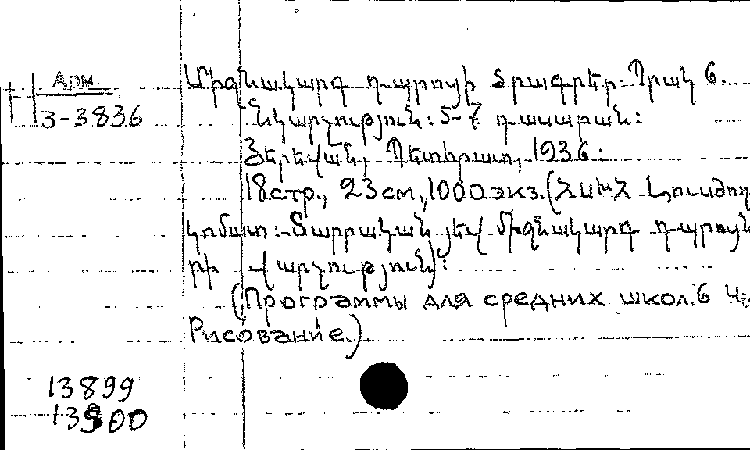 Арм.
3-3836
Միջնակարգ դպրոցի ծրագրեր. Պրակ 6.
Նկարչություն: 5-7 դասարան:
Յերեվան, Պետհրատ, 1936:
18 стр., 23 см., 1000 экз. (ՀՍԽՀ Լուսժող
կոմատ: Տարրական յեվ միջնակարգ դպրոցն
րի վարչություն):
(Программы для средних школ. 6
Рисование.)
13899
13900